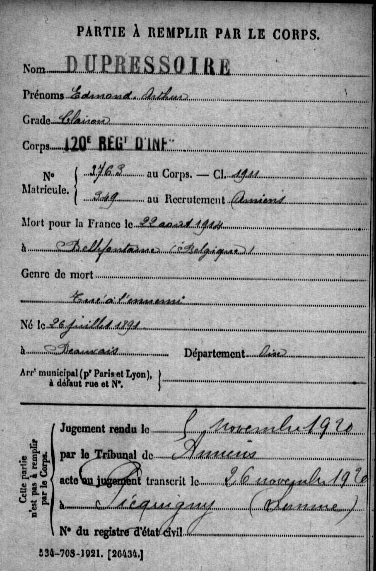 PARTIE À REMPLIR PAR LE CORPS.
Nom DUPRESSOIRE
Prénoms Edmond Arthur
Grade Clairon
Corps 120E REGT D'INFIE
No 3763 au Corps. — Cl. 1911
Matricule. 349 au Recrutement Amiens
Mort pour la France le 22 août 1914
à Bellefontaine (Belgique)
Genre de mort
Tué à l'ennemi
Né le 26 juillet 1891
à Beauvais Département Oise
Arrt municipal (pr Paris et Lyon), à défaut rue et No.
Cette partie n'est pas à remplir par le Corps.
Jugement rendu le 5 novembre 1920
par le Tribunal de Amiens
acte ou jugement transcrit le 26 novembre 1920
à Picquigny (Somme)
No du registre d'état civil
534-708-1921. [26434.]